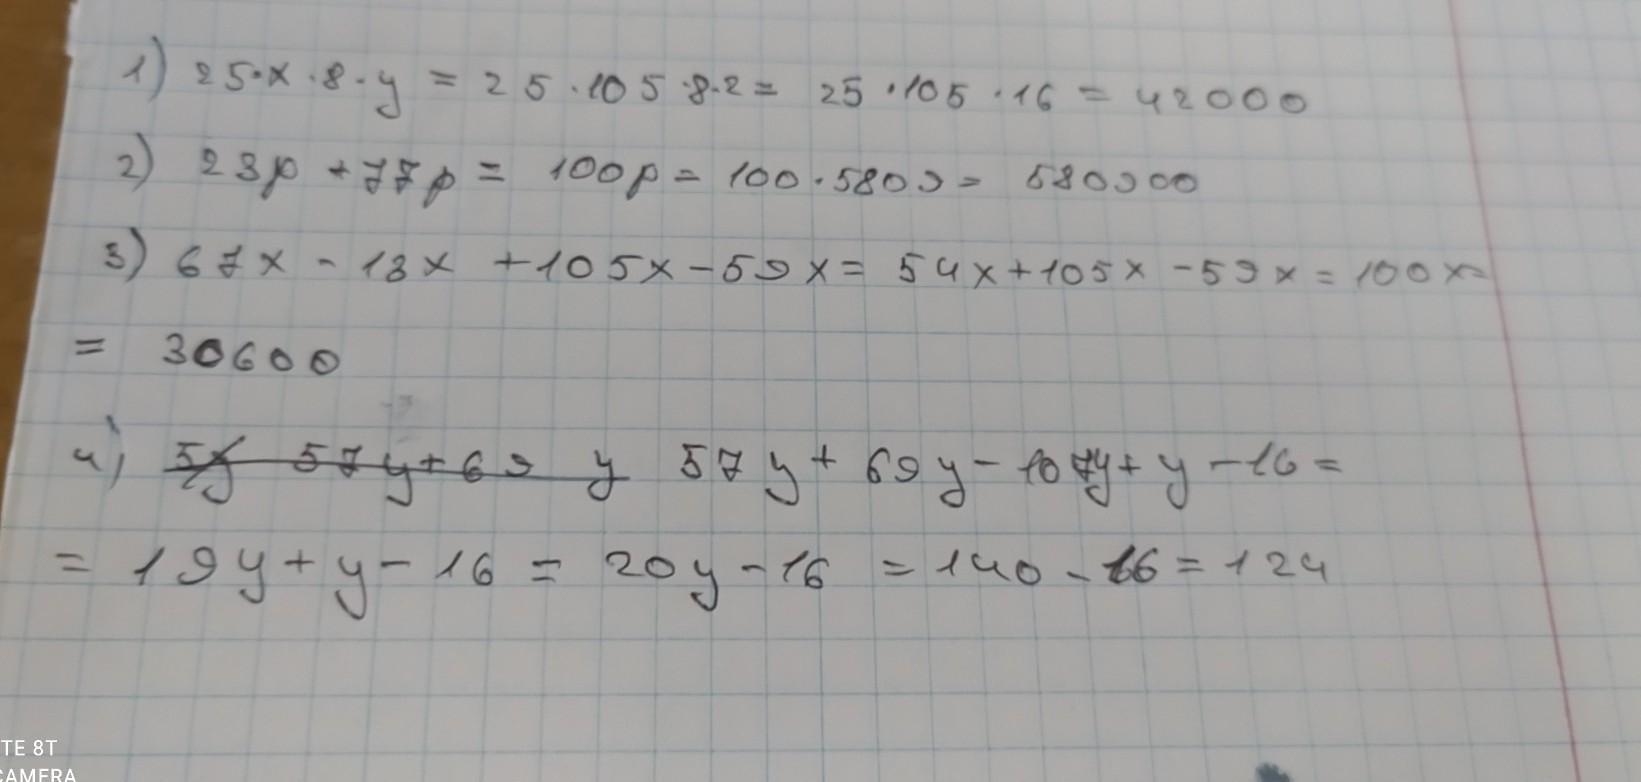 1) 25·x·8·y = 25·105·8·2 = 25·105·16 = 42000
2) 23p + 77p = 100p = 100·5800 = 580000
3) 67x - 13x + 105x - 59x = 54x + 105x - 59x = 100x =
= 30600
4) 57y + 69y 57y + 69y - 107y + y - 16 =
= 19y + y - 16 = 20y - 16 = 140 - 16 = 124
TE 8T
CAMERA